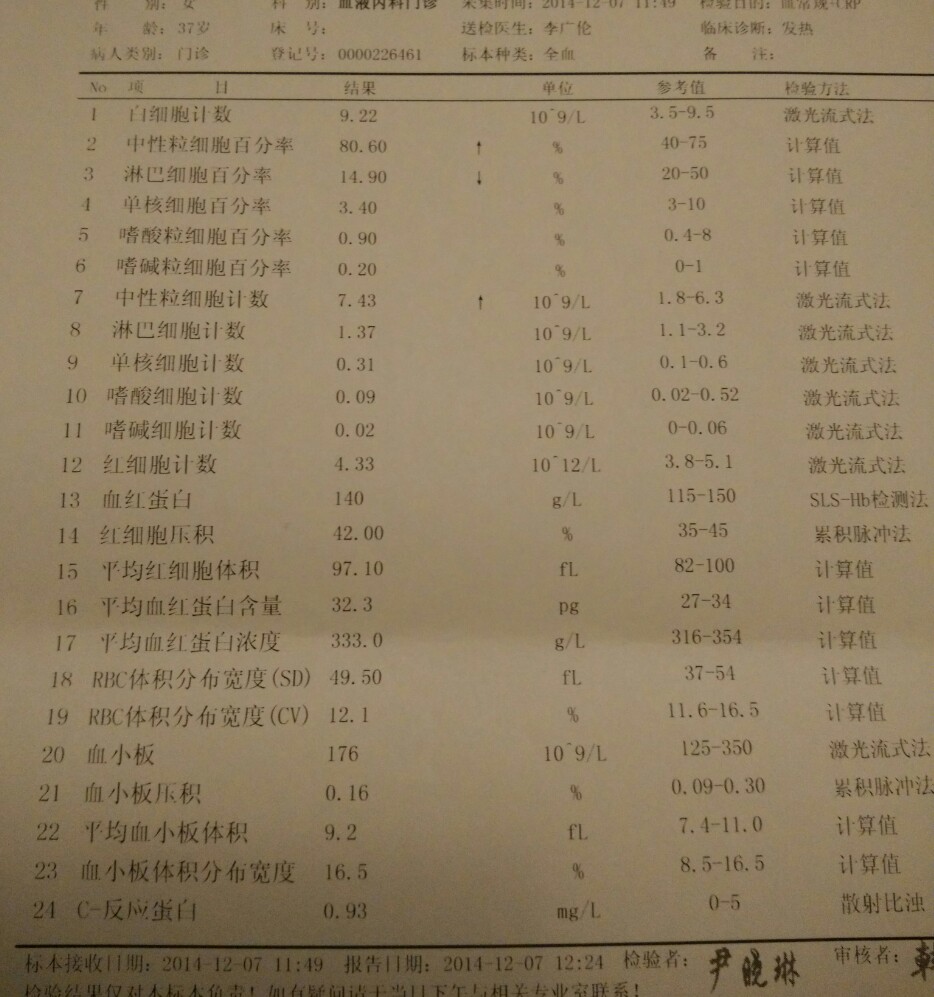 性 别: 女 科 别: 血液内科门诊 采集时间: 2014-12-07 11:49 检验目的: 血常规+CRP
年 龄: 37岁 床 号: 送检医生: 李广伦 临床诊断: 发热
病人类别: 门诊 登记号: 0000226461 标本种类: 全血 备 注:
No 项 目 结果 单位 参考值 检验方法
1 白细胞计数 9.22 10^9/L 3.5-9.5 激光流式法
2 中性粒细胞百分率 80.60 ↑ % 40-75 计算值
3 淋巴细胞百分率 14.90 ↓ % 20-50 计算值
4 单核细胞百分率 3.40 % 3-10 计算值
5 嗜酸粒细胞百分率 0.90 % 0.4-8 计算值
6 嗜碱粒细胞百分率 0.20 % 0-1 计算值
7 中性粒细胞计数 7.43 ↑ 10^9/L 1.8-6.3 激光流式法
8 淋巴细胞计数 1.37 10^9/L 1.1-3.2 激光流式法
9 单核细胞计数 0.31 10^9/L 0.1-0.6 激光流式法
10 嗜酸细胞计数 0.09 10^9/L 0.02-0.52 激光流式法
11 嗜碱细胞计数 0.02 10^9/L 0-0.06 激光流式法
12 红细胞计数 4.33 10^12/L 3.8-5.1 激光流式法
13 血红蛋白 140 g/L 115-150 SLS-Hb检测法
14 红细胞压积 42.00 % 35-45 累积脉冲法
15 平均红细胞体积 97.10 fL 82-100 计算值
16 平均血红蛋白含量 32.3 pg 27-34 计算值
17 平均血红蛋白浓度 333.0 g/L 316-354 计算值
18 RBC体积分布宽度(SD) 49.50 fL 37-54 计算值
19 RBC体积分布宽度(CV) 12.1 % 11.6-16.5 计算值
20 血小板 176 10^9/L 125-350 激光流式法
21 血小板压积 0.16 % 0.09-0.30 累积脉冲法
22 平均血小板体积 9.2 fL 7.4-11.0 计算值
23 血小板体积分布宽度 16.5 % 8.5-16.5 计算值
24 C-反应蛋白 0.93 mg/L 0-5 散射比浊
标本接收日期: 2014-12-07 11:49 报告日期: 2014-12-07 12:24 检验者: 尹晓琳 审核者:
检验结果仅对本标本负责! 如有疑问请于当日下午与相关专业室联系!